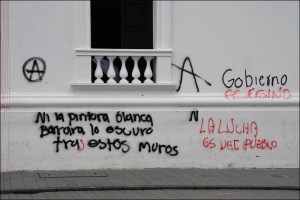 Gobierno
ASESINO
Ni la pintura blanca
Borrara lo oscuro
tras estos muros
LA LUCHA
ES DEL PUEBLO